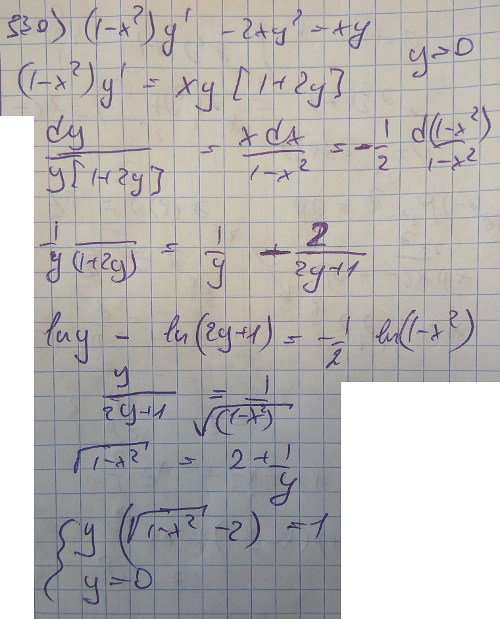 530) (1-x²)y' -2xy² = xy
y=0
(1-x²)y' = xy[1+2y]
dy/y[1+2y] = x dx/1-x² = -1/2 d(1-x²)/1-x²
1/y(1+2y) = 1/y - 2/2y+1
ln y - ln(2y+1) = -1/2 ln(1-x²)
y/2y+1 = 1/√(1-x²)
√1-x² = 2+1/y
{ y(√1-x² -2) = 1
y=0